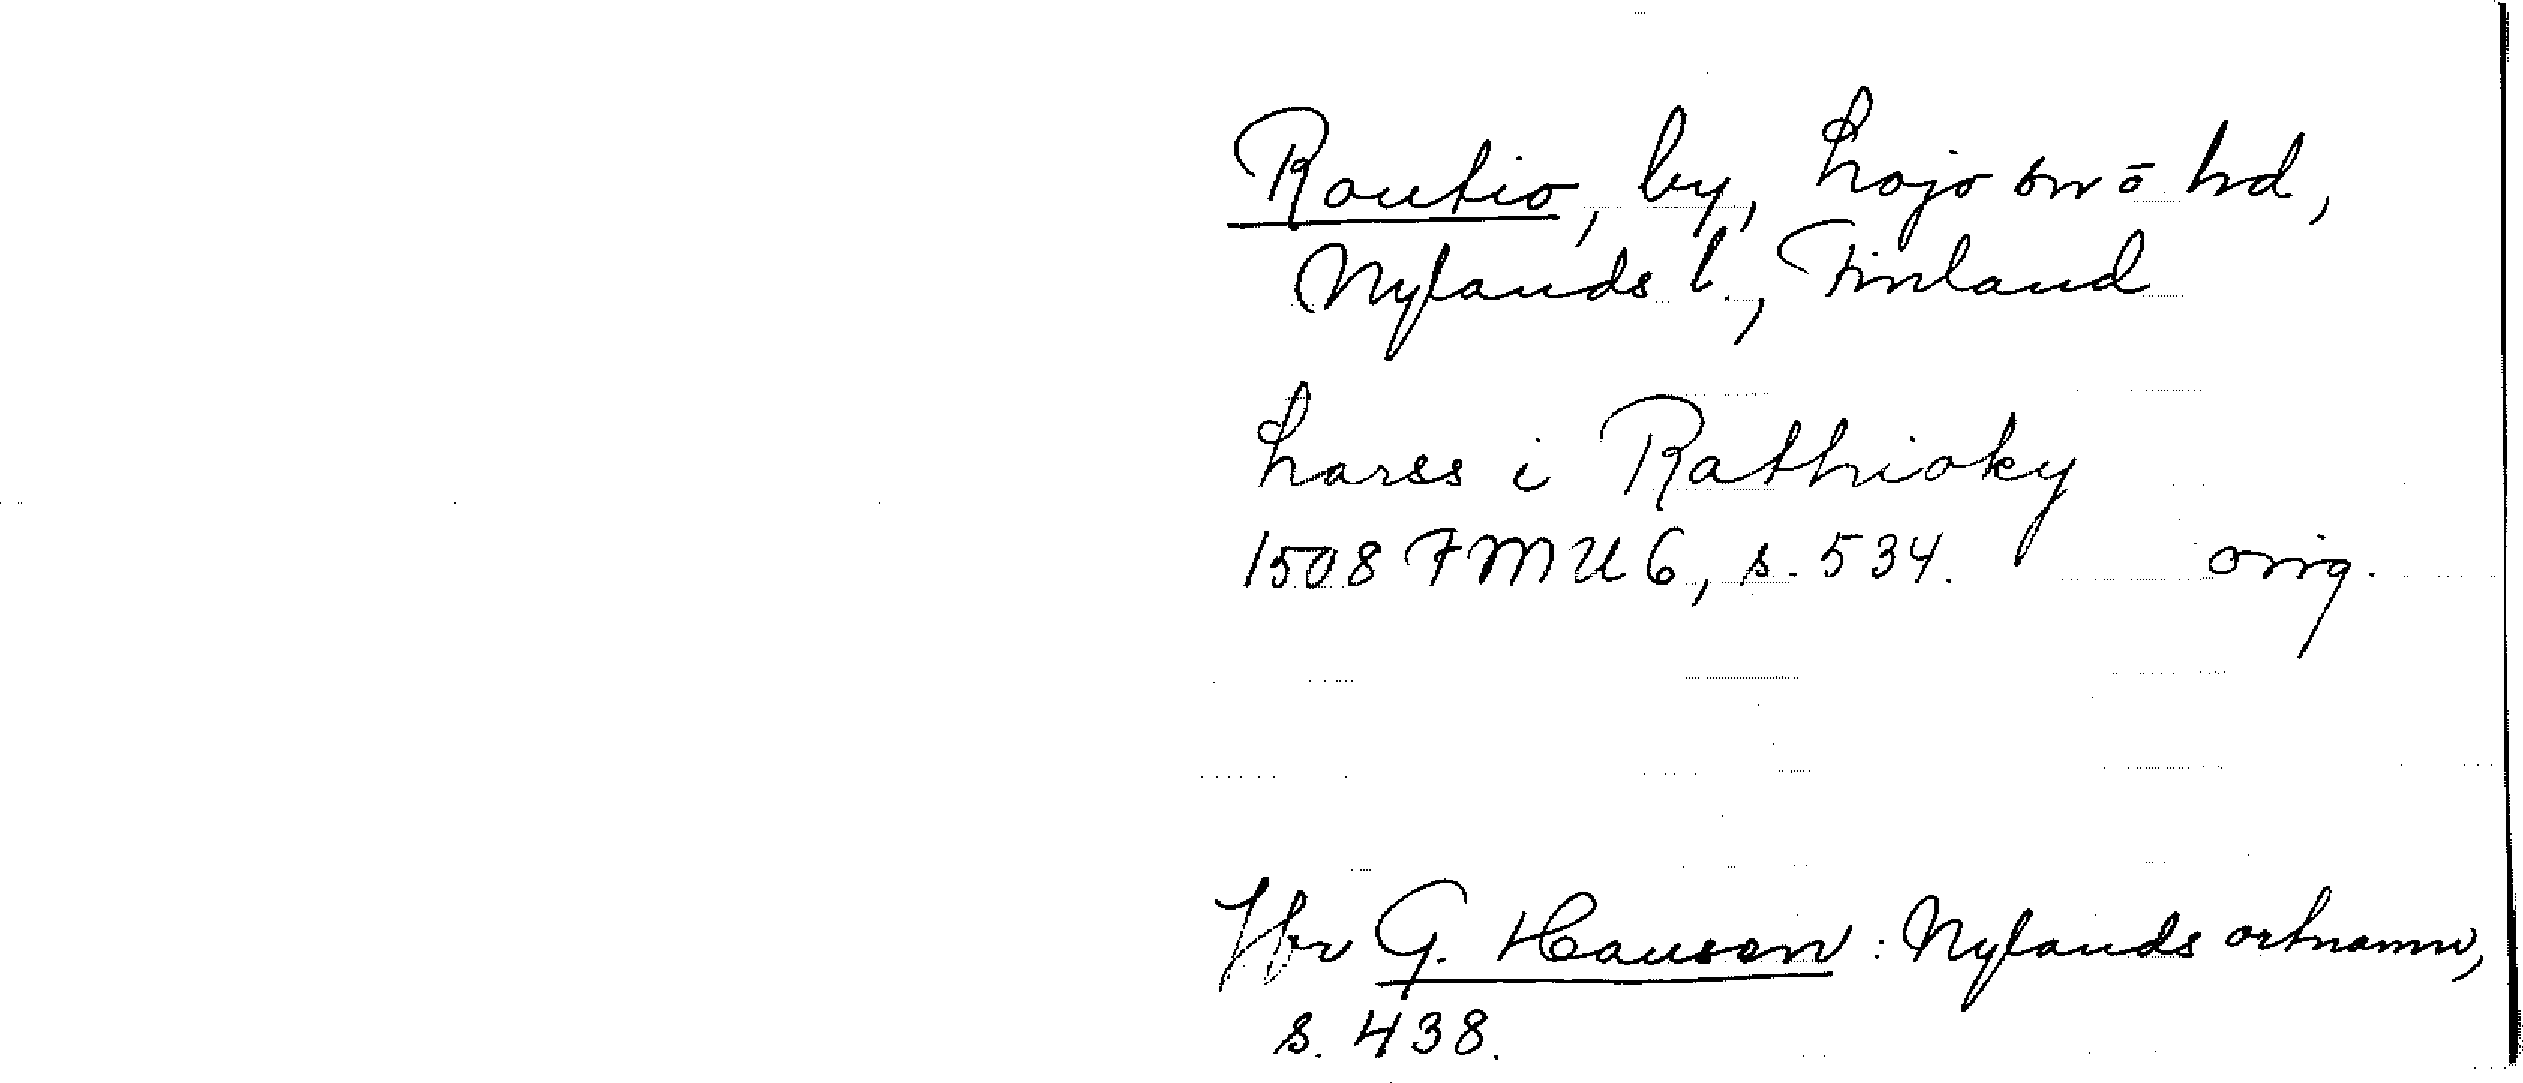 Routio, by, Lojo sn o hd,
Nylands l., Finland
Larss i Rathioky
1508 FMU 6, s. 534. orig.
Jfr G. Hausen: Nylands ortnamn,
s. 438.